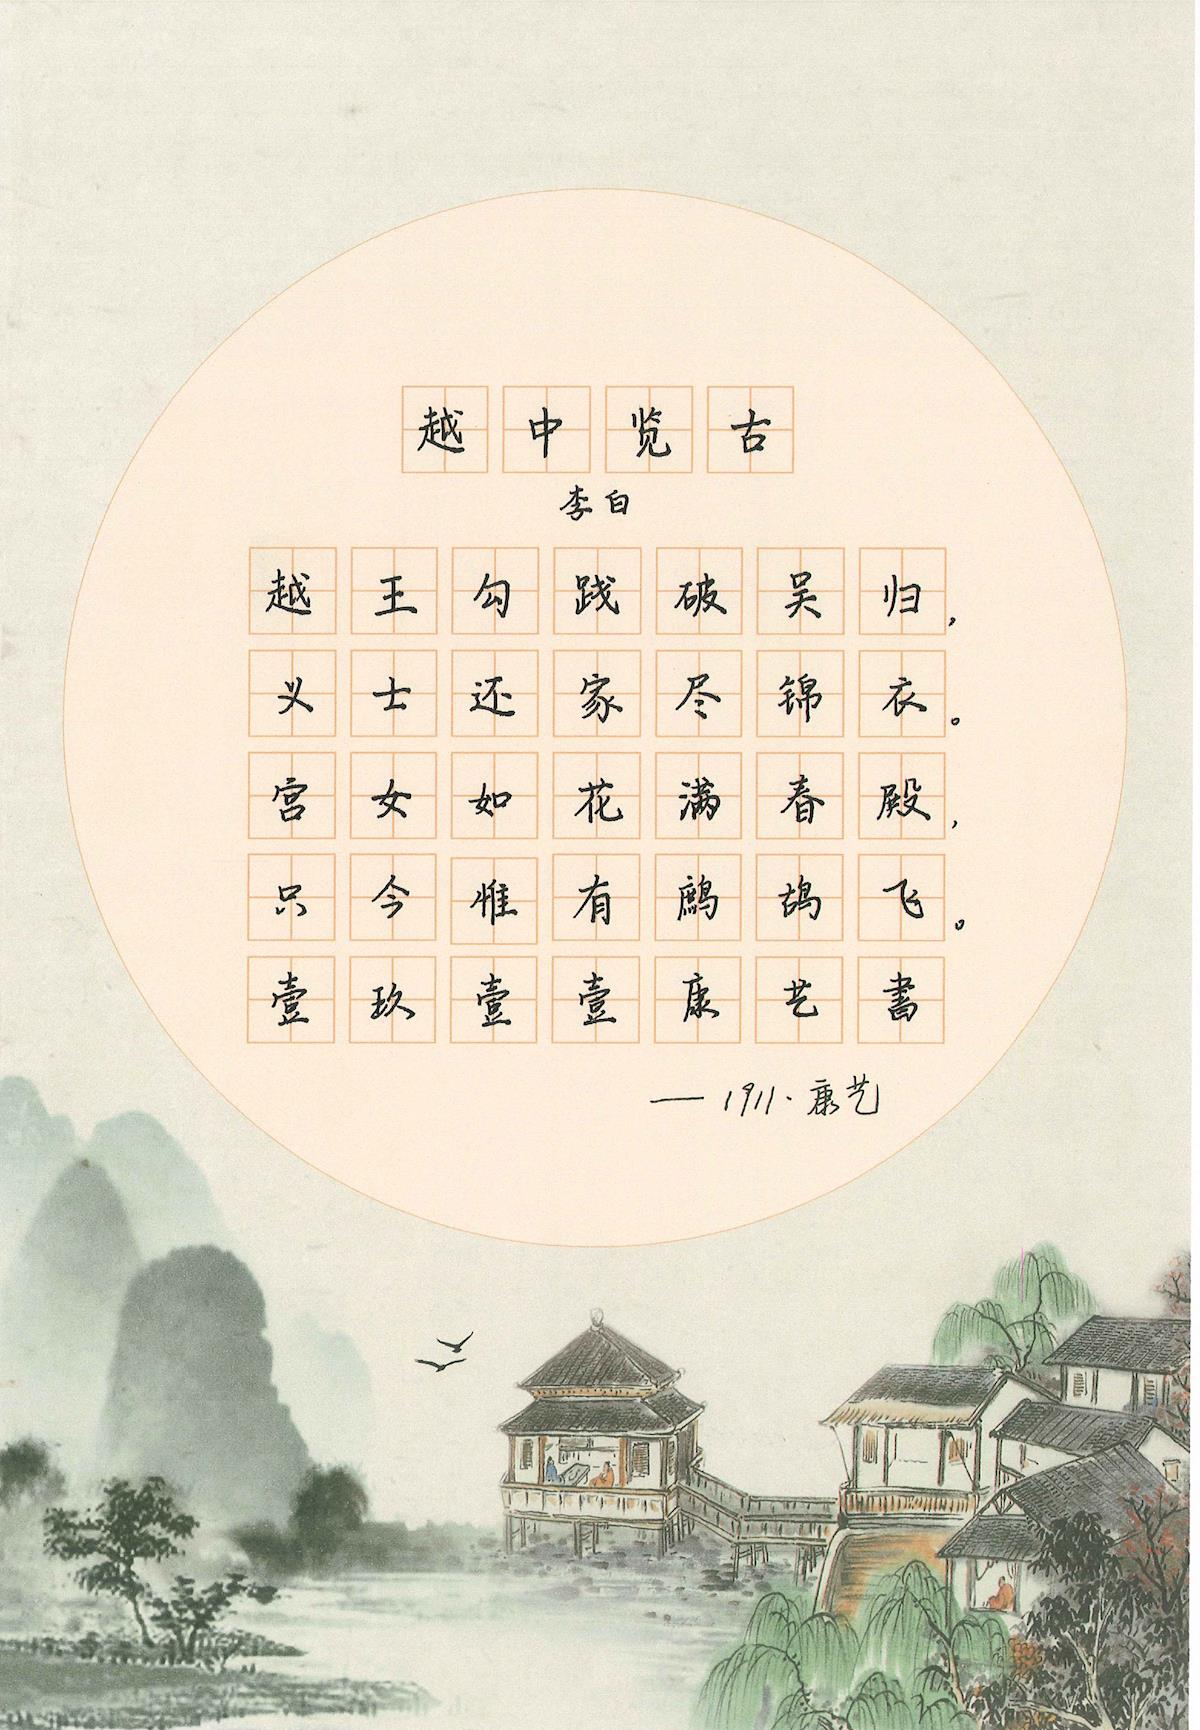 越中览古
李白
越王勾践破吴归，
义士还家尽锦衣。
宫女如花满春殿，
只今惟有鹧鸪飞。
壹玖壹壹康艺書
——1911·康艺